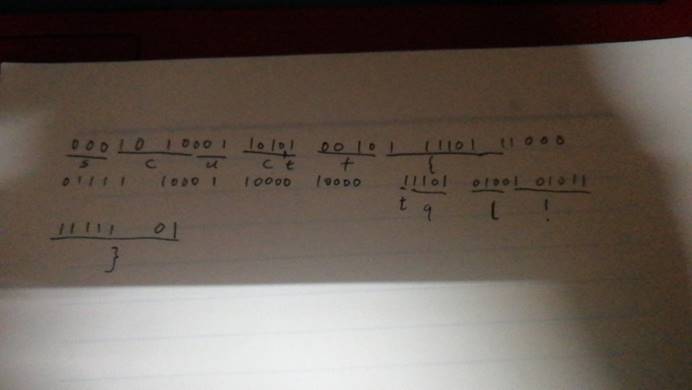 00010 10001 10101 00101 11101 11000
s c u c t t {
01111 10001 10000 10000 11101 01001 01011
t q l !
11111 01
}